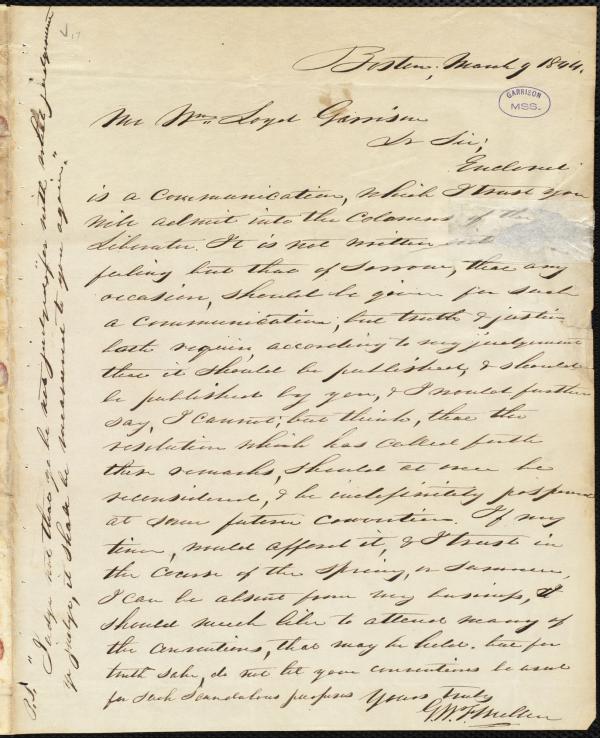 Boston, March 9 1844.
GARRISON
MSS.
Mr Wm. Loyd Garrison
Dr Sir;
Enclosed
is a communication, which I trust you
will admit into the Colomns of the
Liberator. It is not written with
feeling but that of sorrow, that any
occasion, should be given for such
a communication, but truth & justice
both require, according to my judgement
that it should be published, & should
be published by you, & I would further
say, I cannot, but think, that the
resolution which has called forth
these remarks, should at once be
reconsidered, & be indefinitely postponed
at some future convention. If my
time, would afford it, & I trust in
the course of the Spring, or Summer,
I can be absent from my business, I
should much like to attend many of
the conventions, that may be held. but for
truth sake, do not let your conventions be used
for such scandalous purposes Yours truly
G. W. F. Mellen
P.S. "Judge not that ye be not judged for with what judgement
ye judge, it shall be measured to you again."